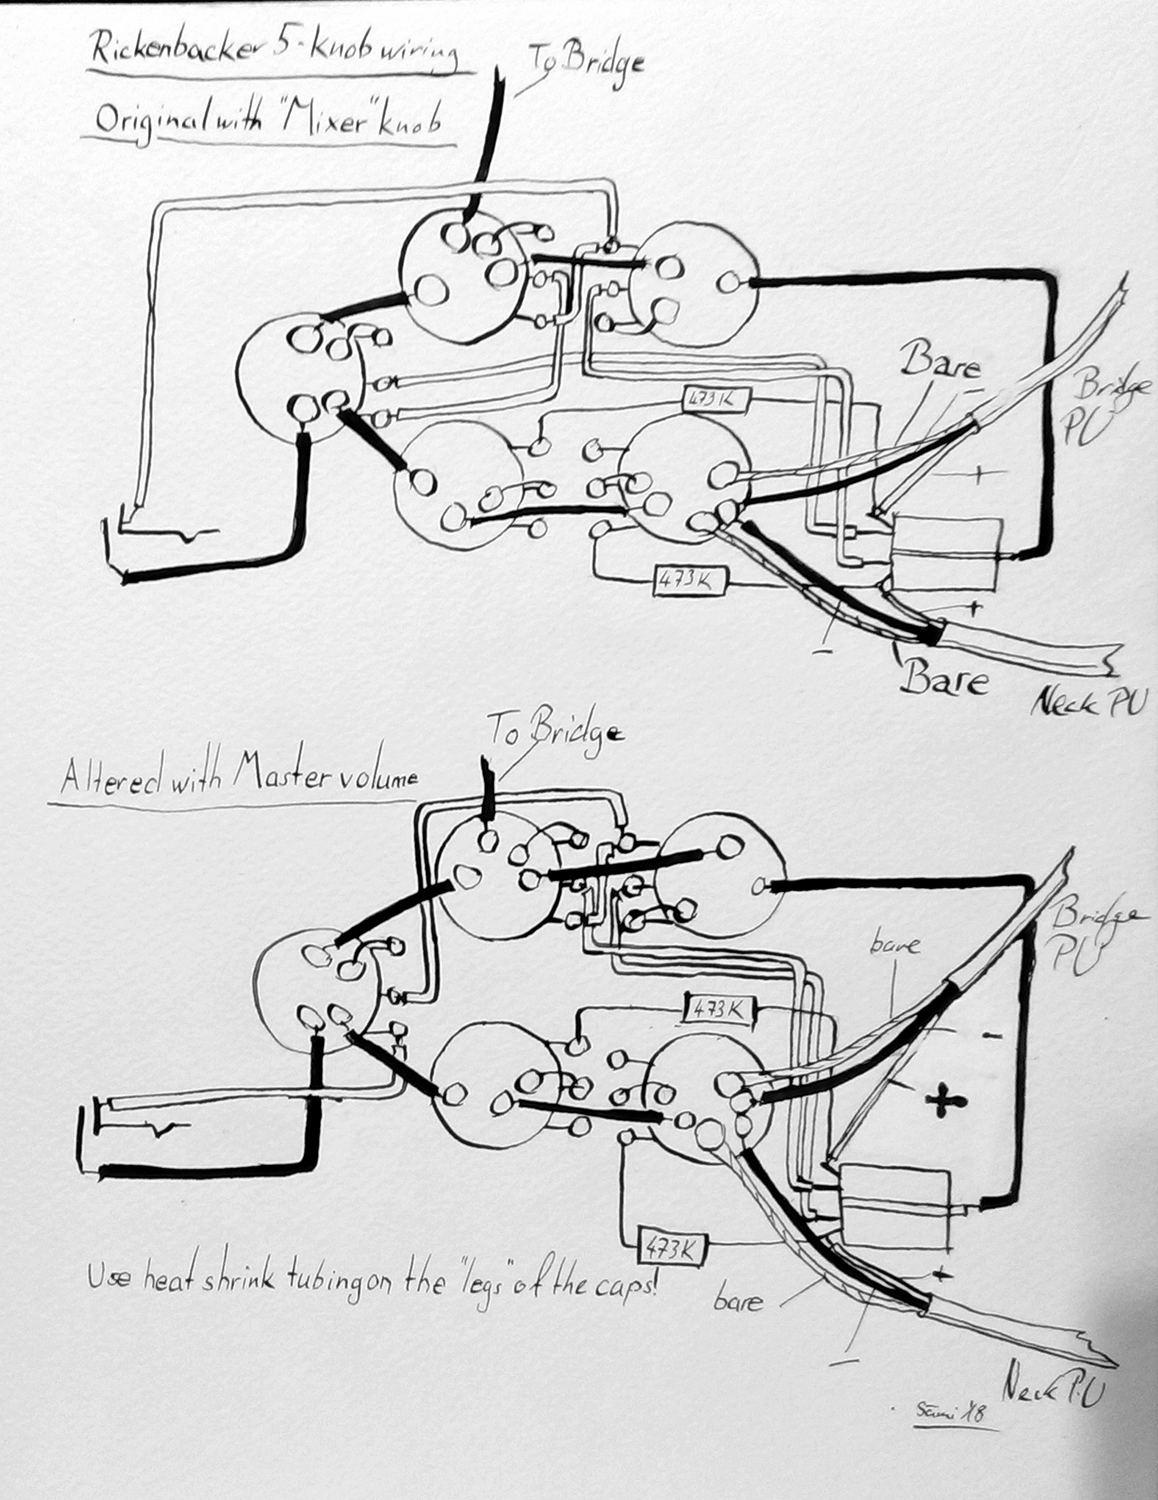 Rickenbacker 5-Knob wiring
To Bridge
Original with "Mixer" knob
473K
Bare
-
Bridge
PU
+
473K
+
-
Bare
Neck PU
To Bridge
Altered with Master volume
Bridge
PU
bare
473K
-
+
473K
Use heat shrink tubing on the "legs" of the caps!
+
bare
-
Neck P.U